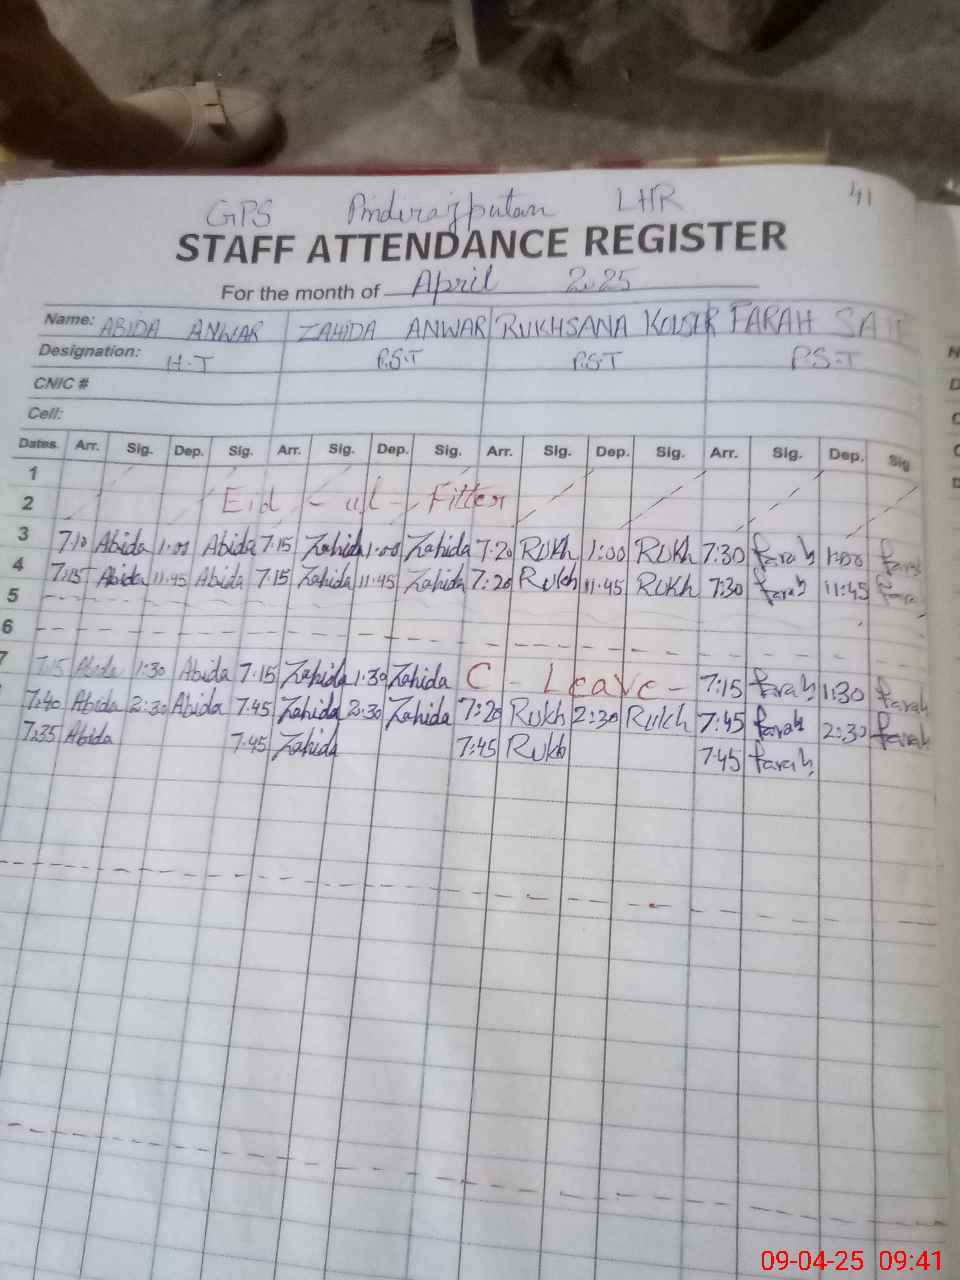 41
GPS Pindirajputan LHR
STAFF ATTENDANCE REGISTER
For the month of April 2025
Name: ABIDA ANWAR ZAHIDA ANWAR RUKHSANA KOUSER FARAH
Designation: H.T P.S.T P.S.T P.S.T
CNIC #
Cell:
Dates. Arr. Sig. Dep. Sig. Arr. Sig. Dep. Sig. Arr. Sig. Dep. Sig. Arr. Sig. Dep. Sig
1
2 Eid - ul - Fitter
3 7:10 Abida 1:00 Abida 7:15 Zahida 1:00 Zahida 7:20 RUKh 1:00 RUKh 7:30 farah 1:00 farah
4 7:15 Abida 11:45 Abida 7:15 Zahida 11:45 Zahida 7:20 Rukh 11:45 RUKh 7:30 farah 11:45 fara
5
6
7 7:15 Abida 1:30 Abida 7:15 Zahida 1:30 Zahida C - Leave - 7:15 farah 1:30 farah
7:40 Abida 2:30 Abida 7:45 Zahida 2:30 Zahida 7:20 Rukh 2:30 Rukh 7:45 farah 2:30 farah
7:35 Abida 7:45 Zahida 7:45 Rukh 7:45 farah
09-04-25 09:41